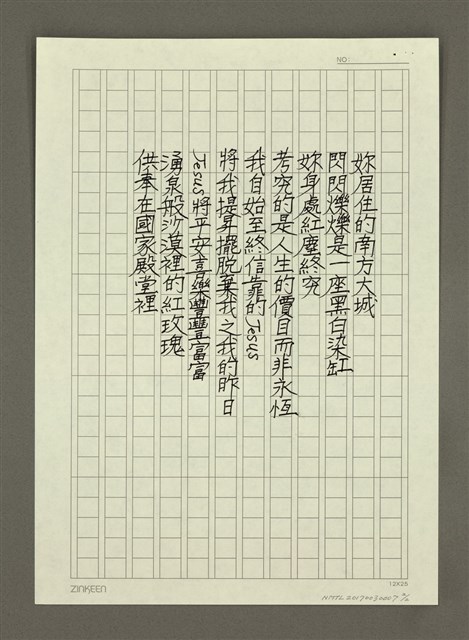 NO:
妳居住的南方大城
閃閃爍爍是一座黑白染缸
妳身處紅塵終究
考究的是人生的價目而非永恆
我自始至終信靠的Jesus
將我提昇擺脫棄我之我的昨日
Jesus將平安喜樂豐豐富富
湧泉般沙漠裡的紅玫瑰
供奉在國家殿堂裡
ZINKEEN
12X25
NMTL20170030007